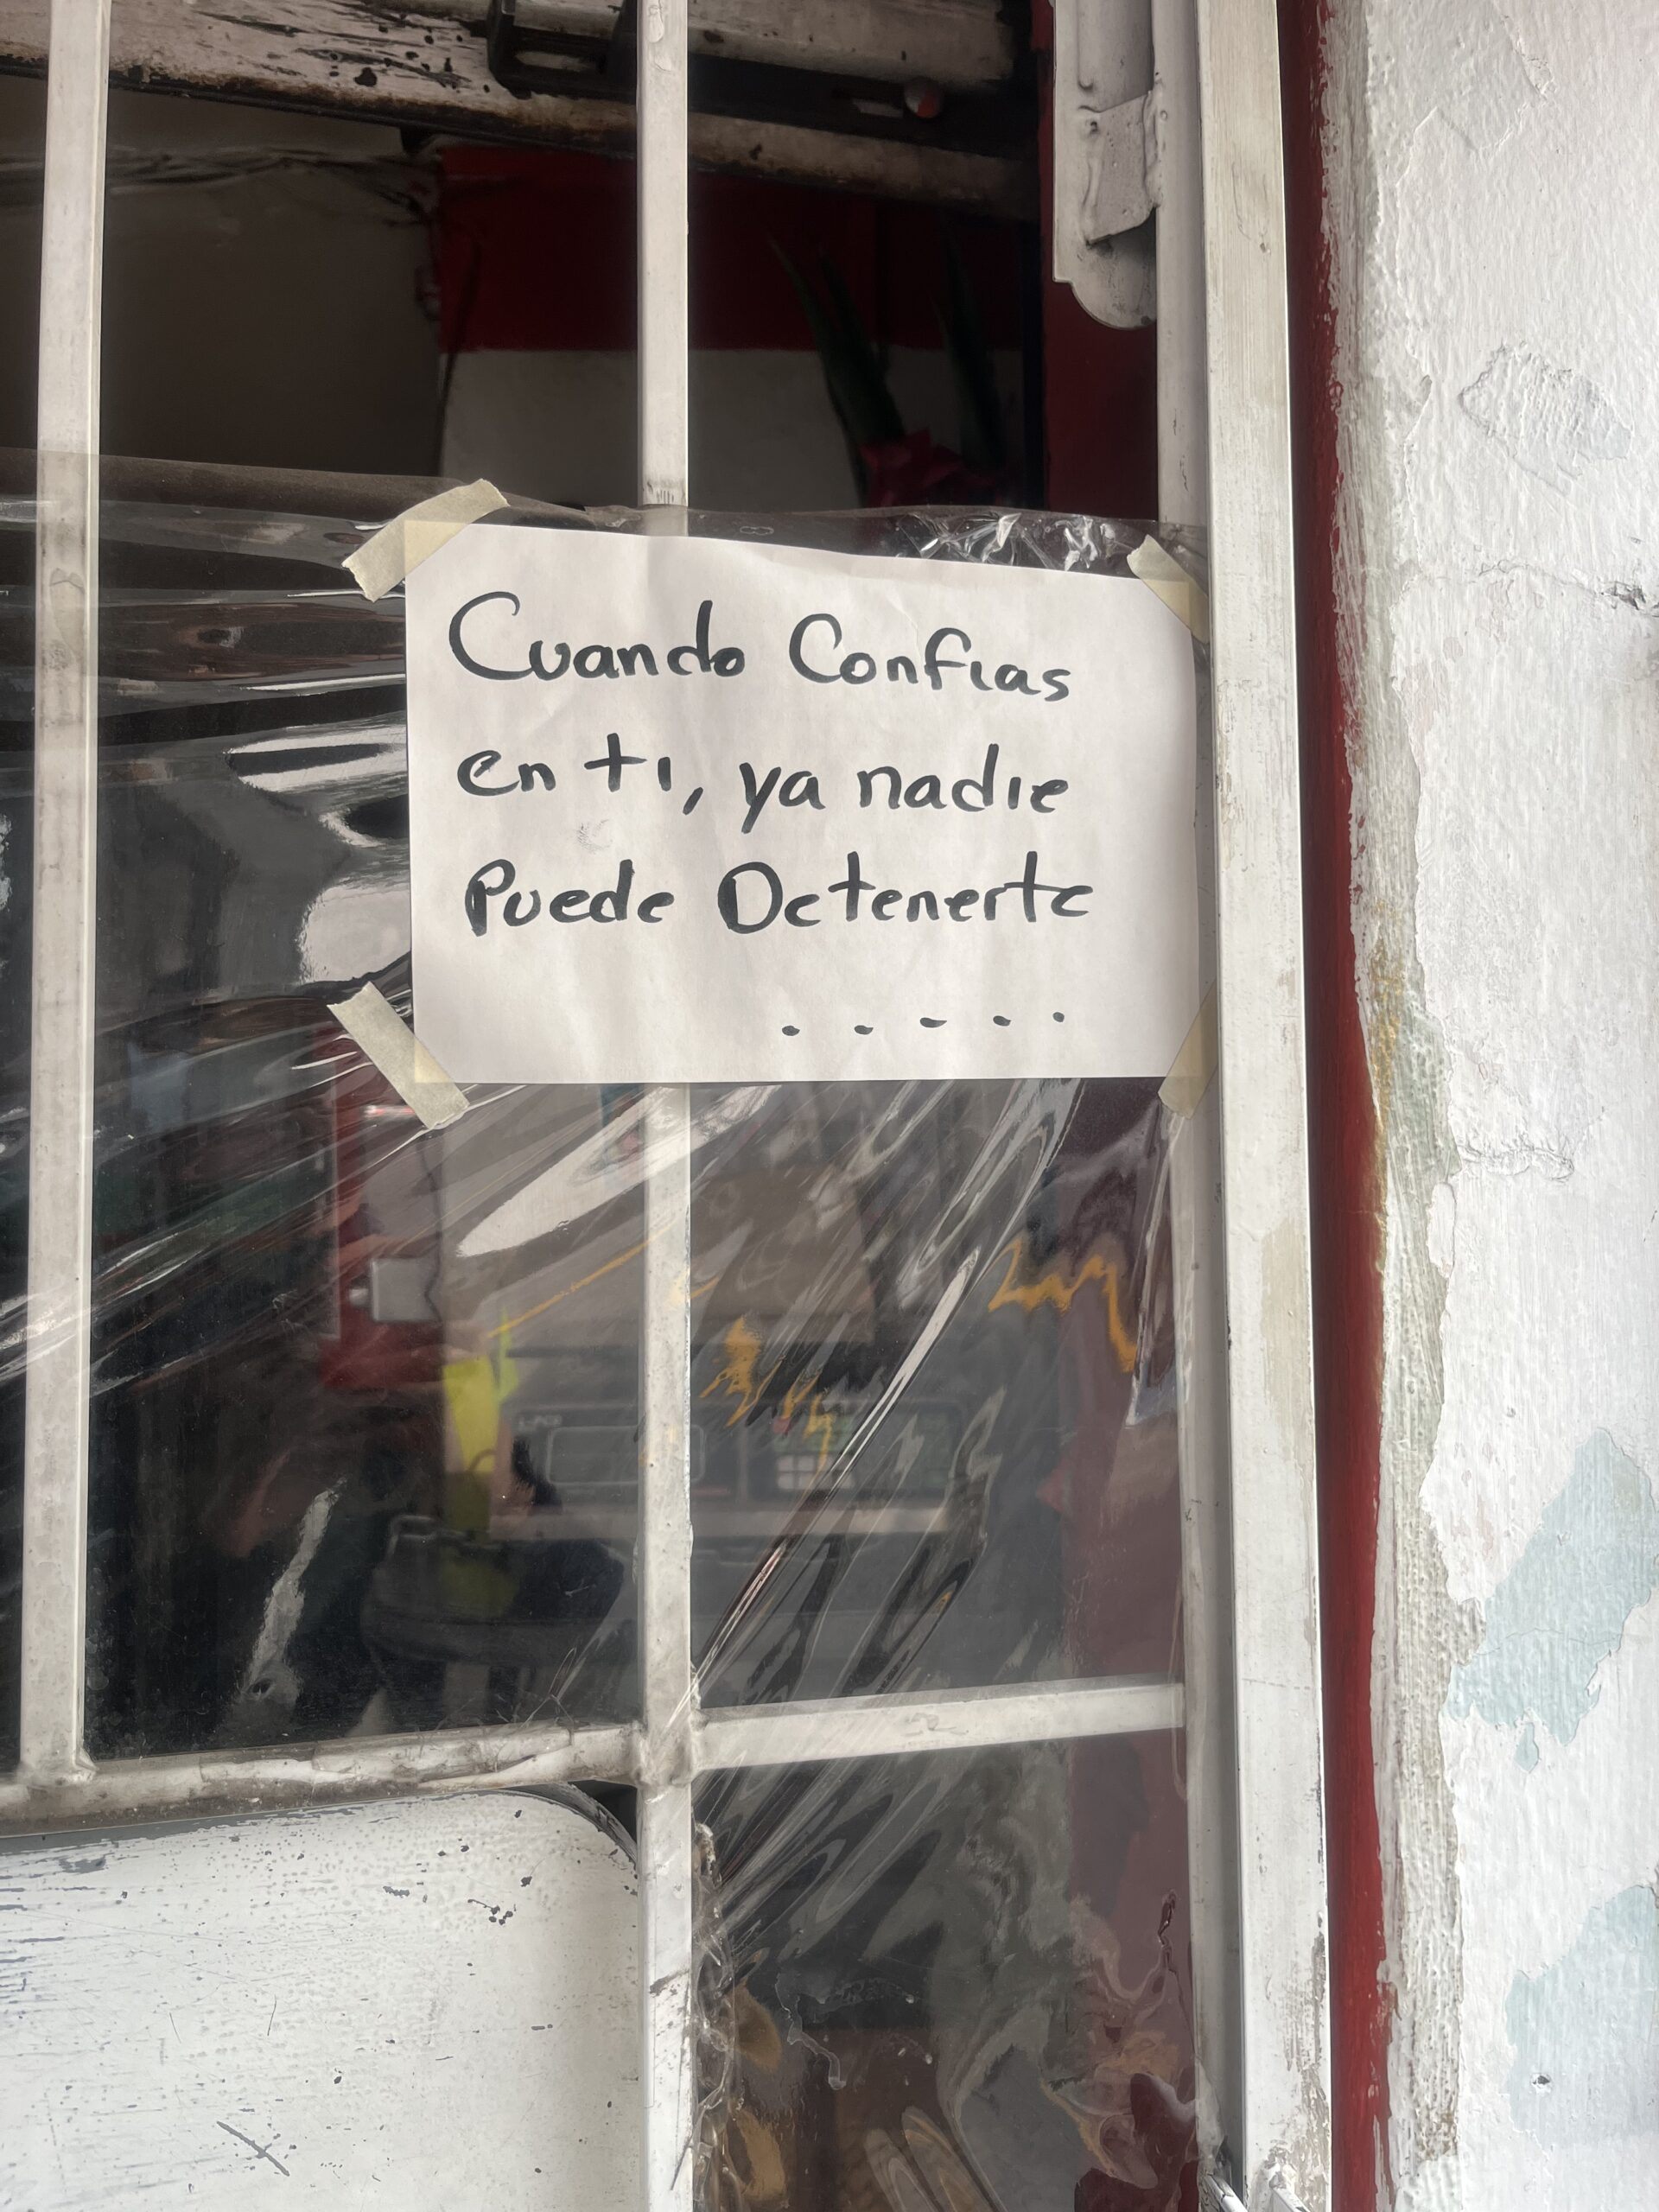 Cuando Confias
en ti, ya nadie
Puede Detenerte
. . . . .